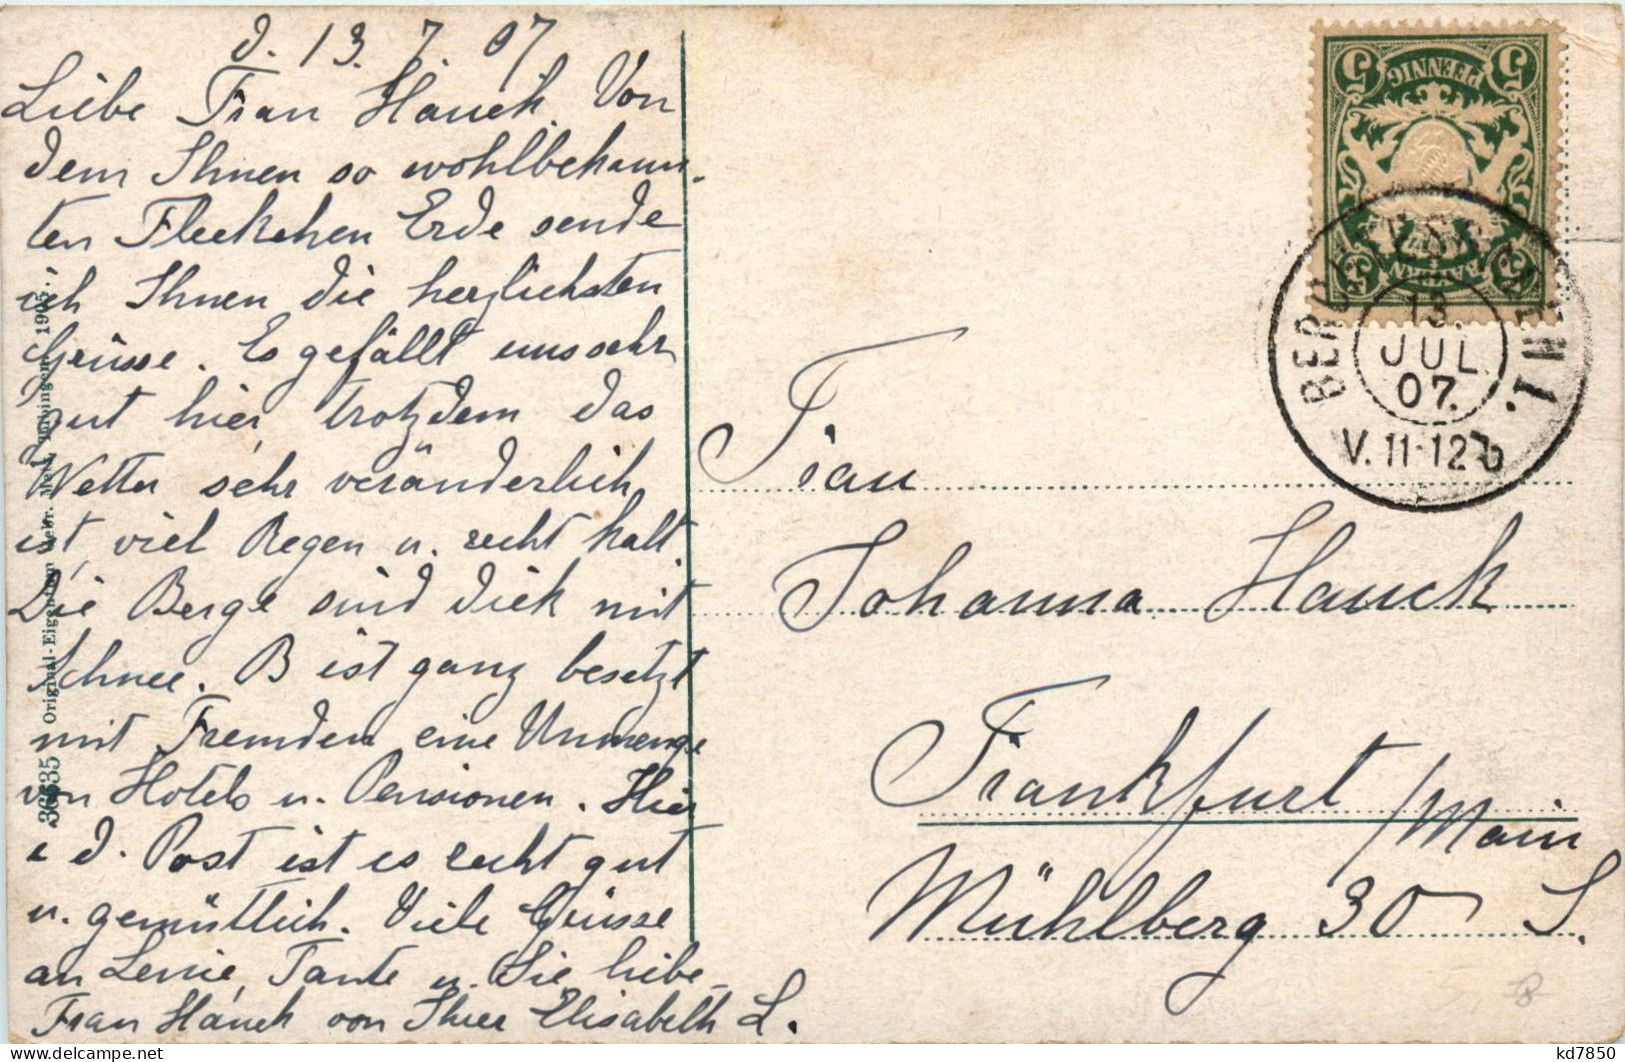 d. 13. 7. 07
Liebe Frau Hauck. Von
dem Ihnen so wohlbekann-
ten Fleckchen Erde sende
ich Ihnen die herzlichsten
Grüsse. Es gefällt uns sehr
gut hier, trotzdem das
Wetter sehr veränderlich
ist, viel Regen u. recht kalt.
Die Berge sind dick mit
Schnee. B ist ganz besetzt
mit Fremden eine Unmenge
von Hotels u. Pensionen. Hier
i d. Post ist es recht gut
u. gemütlich. Viele Grüsse
an Tante u. Sie liebe
Frau Hauck von Ihrer Elisabeth L.
36635 Original-Eigentum 1905.
5 PFENNIG 5
BAYERN
13.
JUL
07.
V. 11-12
Frau
Johanna Hauck
Frankfurt /Main
Mühlberg 30 S.
kd7850